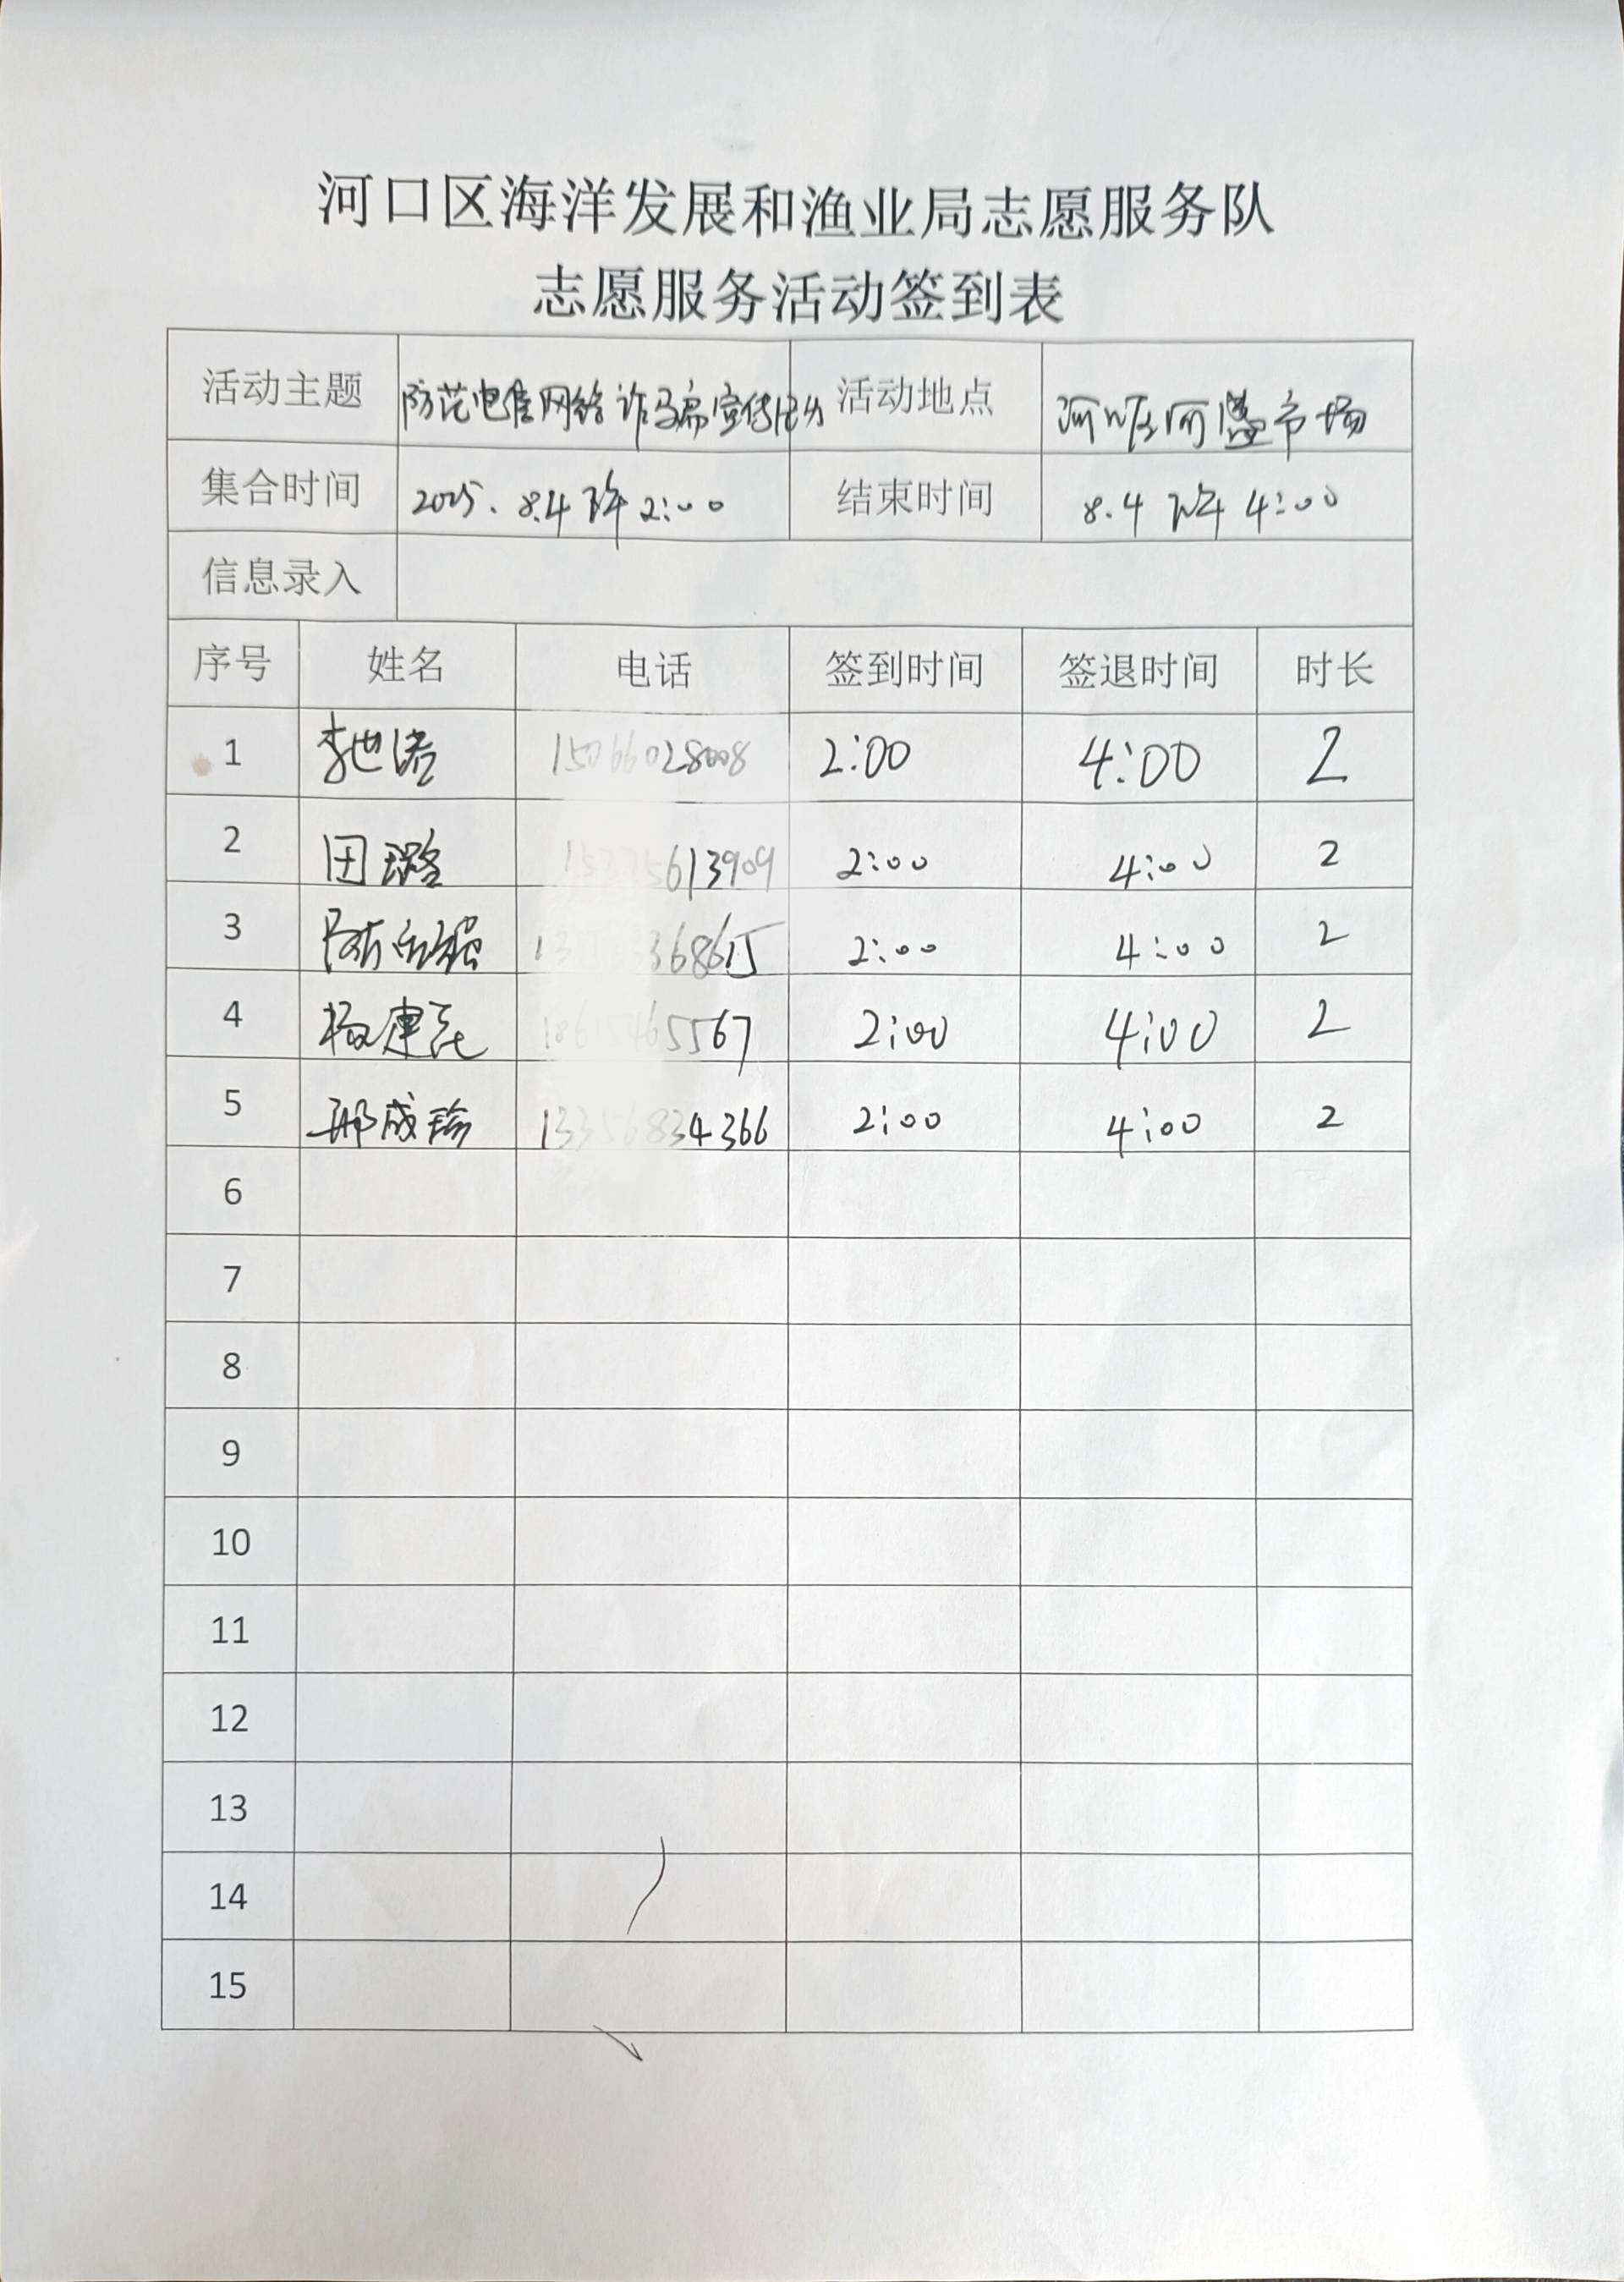 河口区海洋发展和渔业局志愿服务队
志愿服务活动签到表
活动主题 防范电信网络诈骗宣传活动 活动地点 河口区河滨市场
集合时间 2025.8.4 下午 2:00 结束时间 8.4 下午 4:00
信息录入
序号 姓名 电话 签到时间 签退时间 时长
1 李世浩 2:00 4:00 2
2 田璐 2:00 4:00 2
3 2:00 4:00 2
4 2:00 4:00 2
5 2:00 4:00 2
6
7
8
9
10
11
12
13
14
15